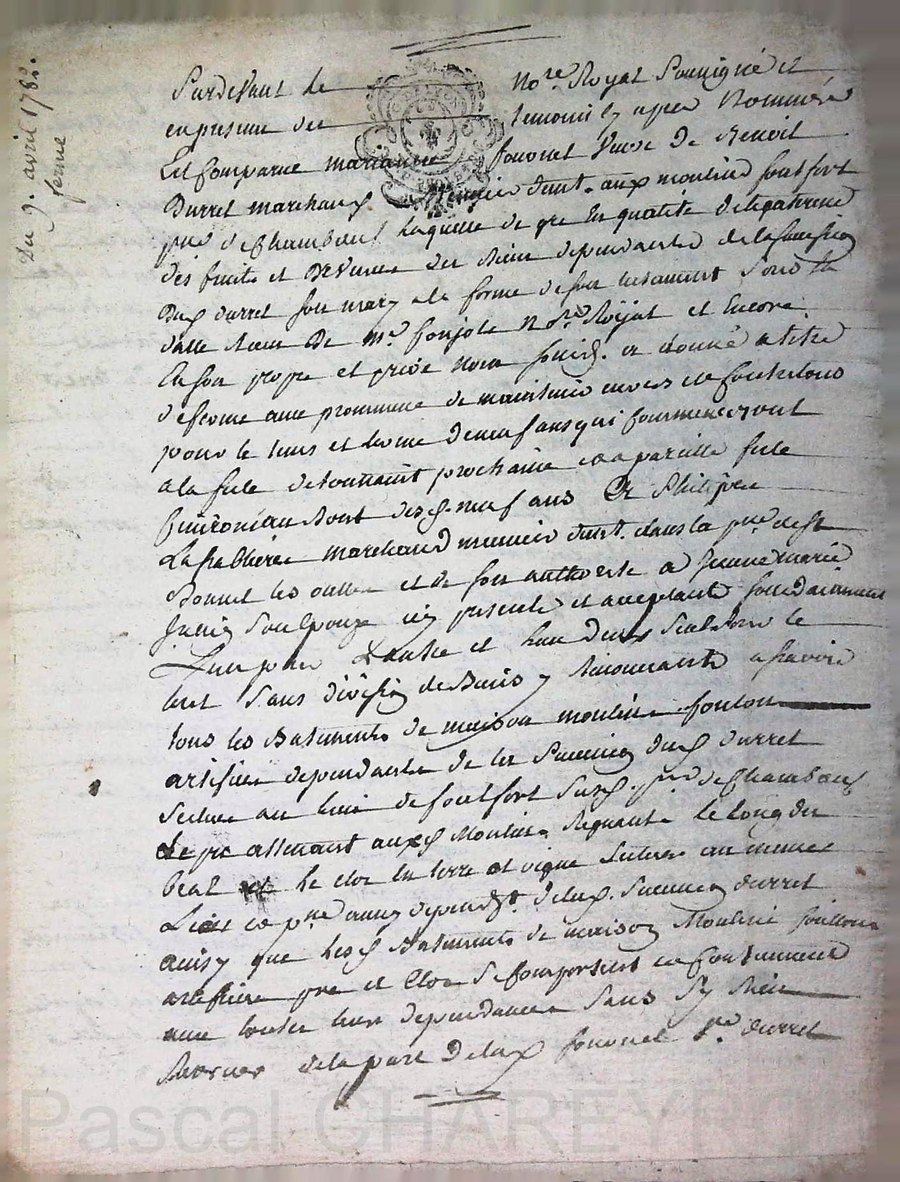 Du 9. avril 1782.
ferme
Pardevant le No.re Royal soussigné et
en presence des temoins cy apres nommés
Est comparue marianne fououet veuve de Benoit
Durret marchand meunier dem.t aux moulins foulfort
p.sse de Chambaud laquelle de gre en qualité
des fruits et Revenus des biens dependants de la succession
Dud durret son mary a la forme de son testament
datte Recu De m.e No.re Royal et Encore
En son propre et privé nom a donné a titre
de ferme avec promesse de maintenir envers et contre tous
pour le tems et terme de neuf ans qui commenceront
a la fete de toussaint prochaine et a pareille fete
finiront lesd neuf ans a Philipe
marchand meunier dem.t dans la p.sse de S.t
Bonnet les oulles et de son authorité a Jeanne marie
son Epouze icy presents et acceptant solidairement
L'un pour L'autre et l'un deux seul pour le
tout sans division de Biens y Renoncants a scavoir
tous les Batiments de maison moulins foulon
artifices dependants de la succession dud durret
situes au lieu de foulfort susd p.sse de Chambaud
Le pre attenant auxd Moulins Regnant Le long du
beal et Le clos en terre et vigne situes au meme
Lieu et p.sse aussy depend.t de lad. succession durret
ainsy que lesd Batiments de maison Moulins foulons
artifices pre et Clos se comportent et contiennent
avec toutes leurs dependances sans sy rien
Reserver de la part de lad fououet v.e durret
Pascal CHAREYRON